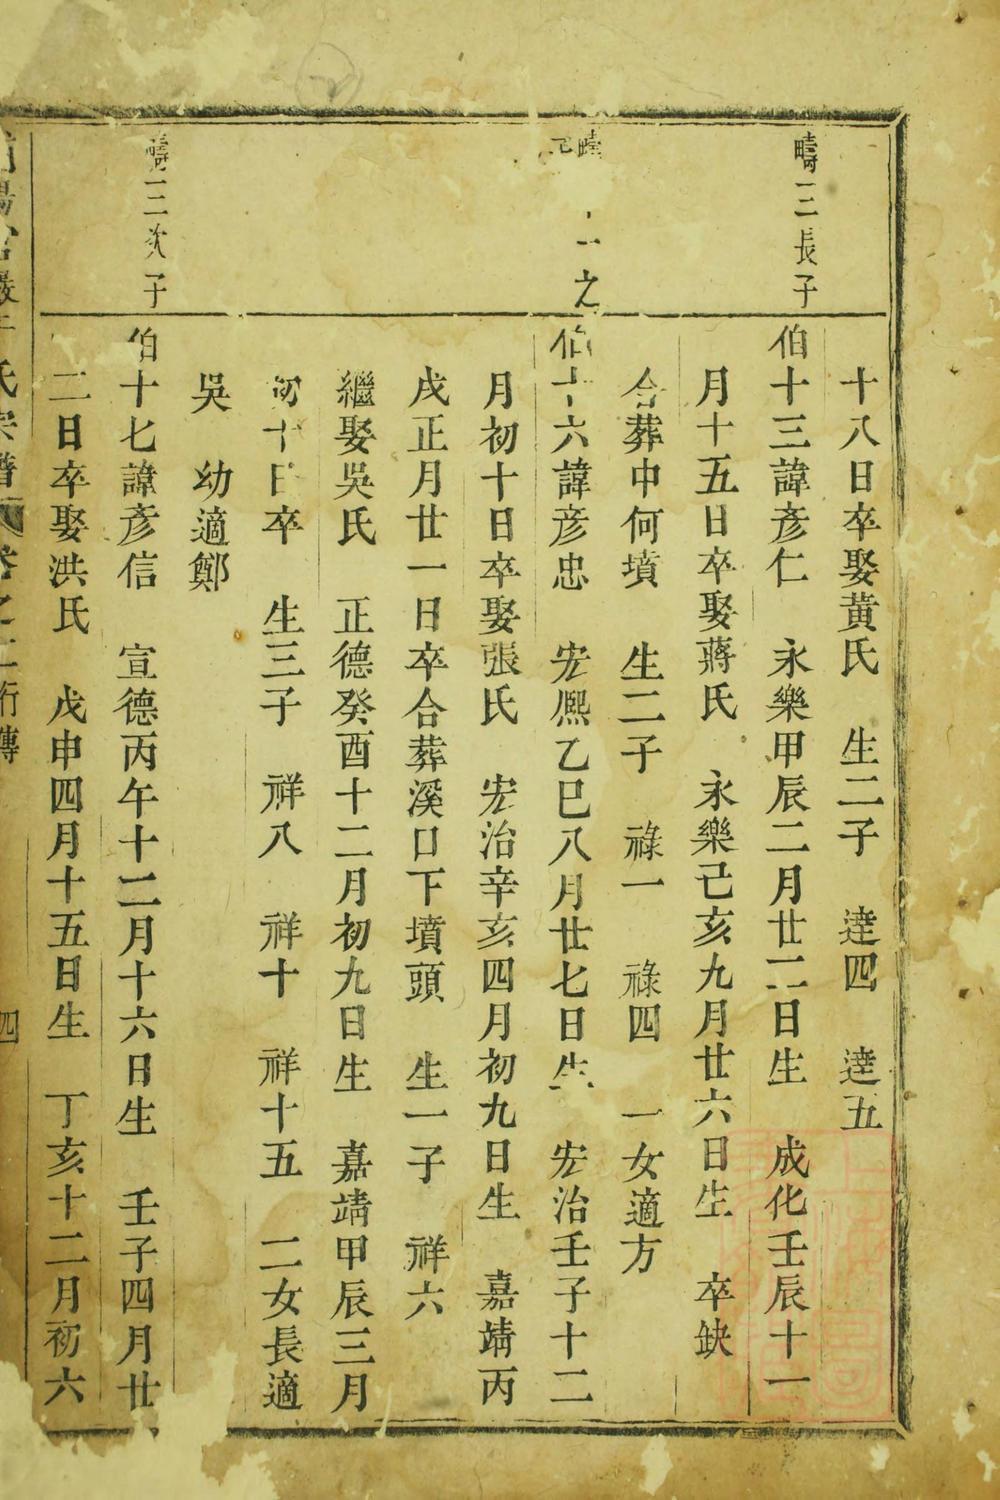 十八日卒娶黃氏 生二子 達四 達五
疇三長子
伯十三諱彥仁 永樂甲辰二月廿二日生 成化壬辰十一
月十五日卒娶蔣氏 永樂己亥九月廿六日生 卒缺
合葬中何墳 生二子 祿一 祿四 一女適方
之
伯十六諱彥忠 宏熈乙巳八月廿七日生 宏治壬子十二
月初十日卒娶張氏 宏治辛亥四月初九日生 嘉靖丙
戌正月廿一日卒合葬溪口下墳頭 生一子 祥六
繼娶吳氏 正德癸酉十二月初九日生 嘉靖甲辰三月
初十日卒 生三子 祥八 祥十 祥十五 二女長適
吳 幼適鄭
疇三次子
伯十七諱彥信 宣德丙午十二月十六日生 壬子四月廿
二日卒娶洪氏 戊申四月十五日生 丁亥十二月初六
氏宗譜 卷之二行傳 四